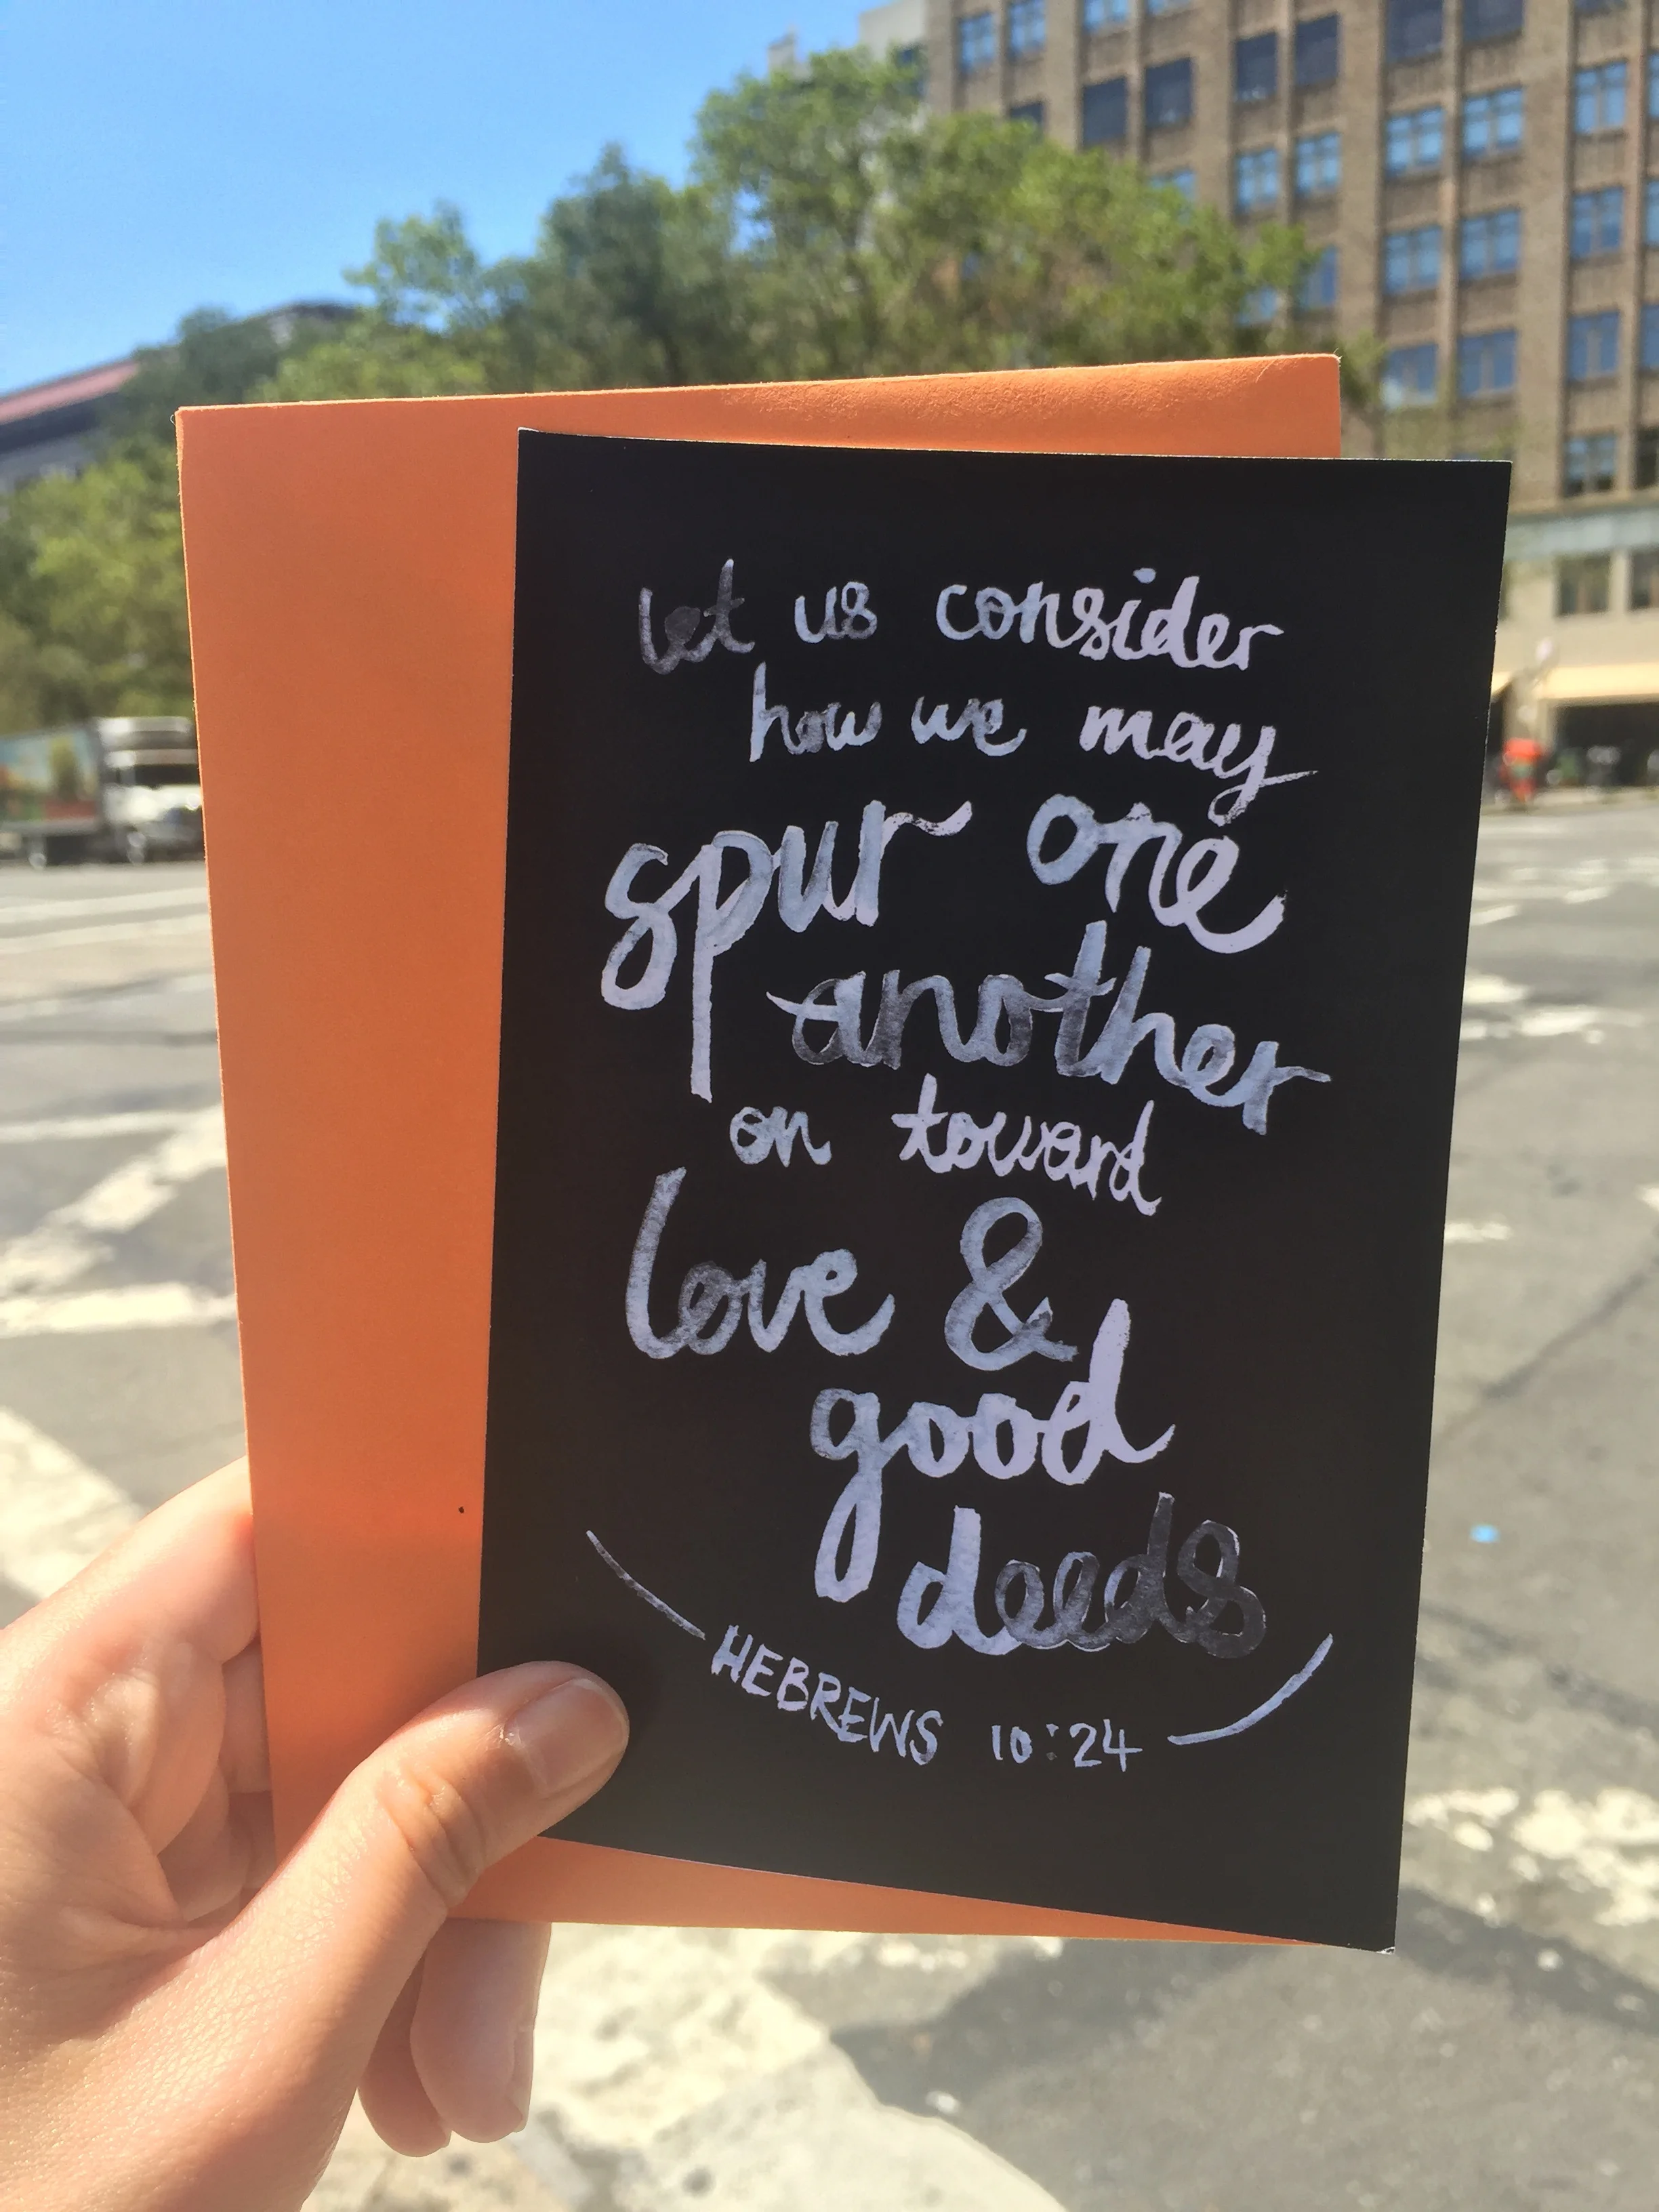 let us consider
how we may
spur one
another
on toward
love &
good
deeds
HEBREWS 10:24